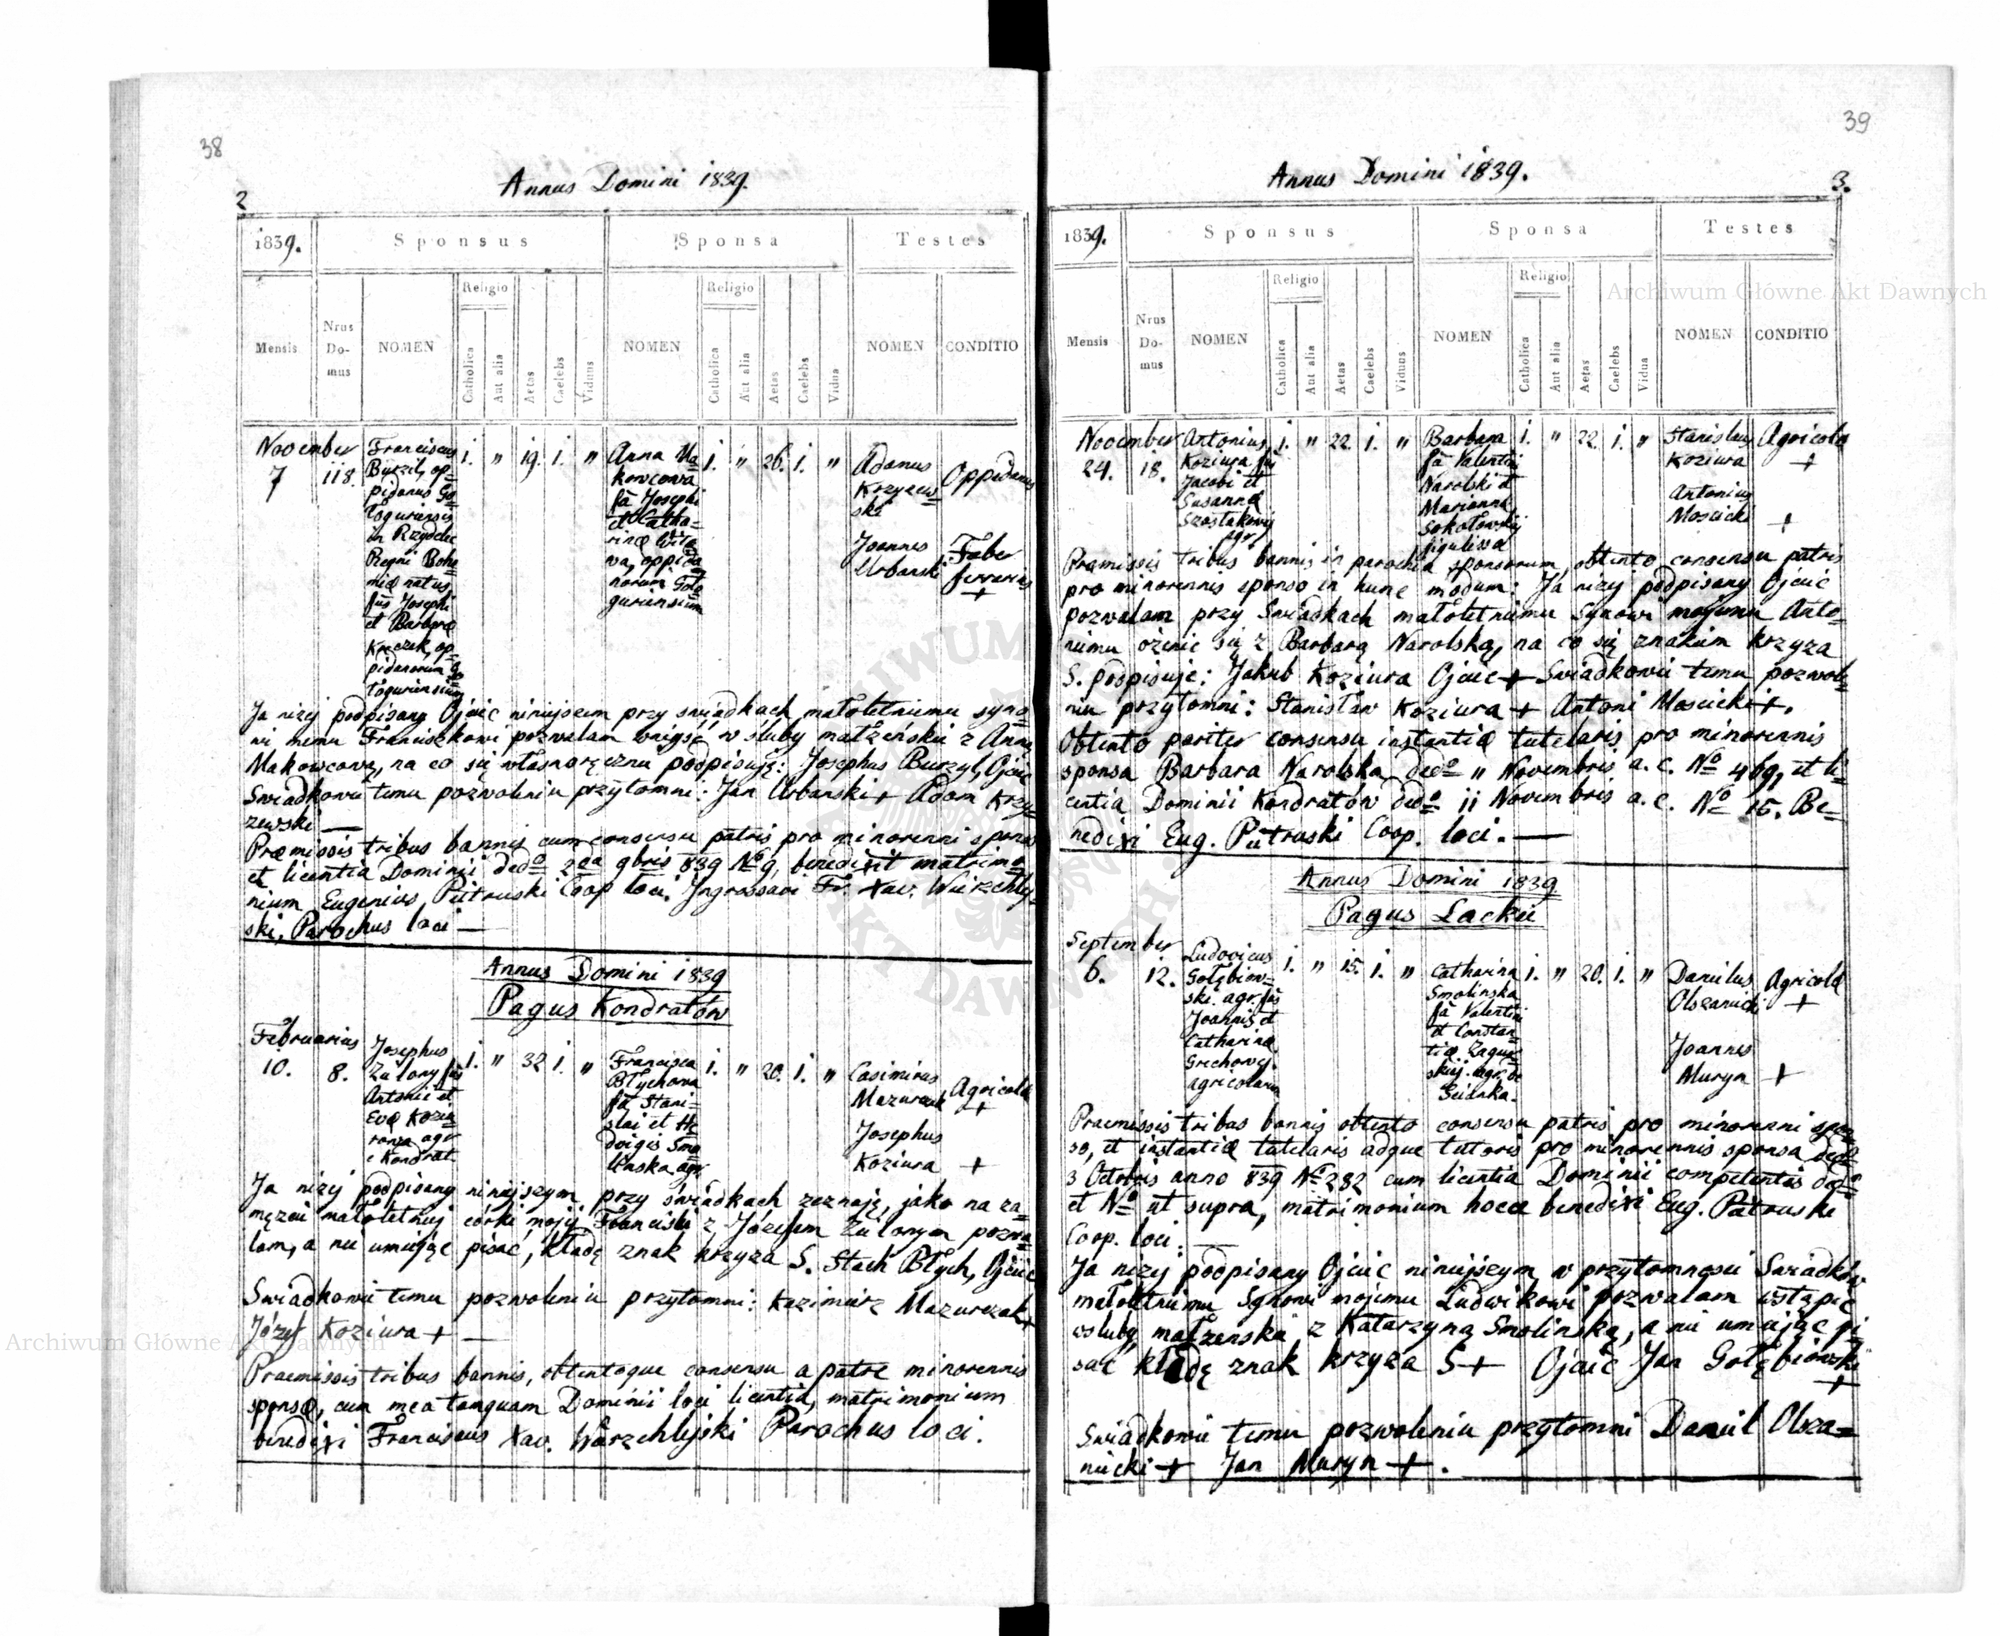 38
Annus Domini 1839.
2
1839.
Sponsus
Sponsa
Testes
Mensis
Nrus Domus
NOMEN
Religio
Catholica
Aut alia
Aetas
Caelebs
Viduus
NOMEN
Religio
Catholica
Aut alia
Aetas
Caelebs
Vidua
NOMEN
CONDITIO
November
7
118.
Franciscus
Burzil, op=
pidanus Go=
loguriensis
in
Regni Bohe=
miæ natus,
fus Josephi
et Barbaræ
Kreczek, op=
pidanorum Go=
loguriensium
1. " 19. 1. "
Anna Ma=
kowcowa
fa Josephi
et Catha=
rinæ
wa, oppida=
norum Golo=
guriensium
1. " 26. 1. "
Adamus
Krzyzew=
ski
Oppidanus
Joannes
Urbanski
Faber
ferrarius
+
Ja niżej podpisany Ojciec niniejszem przy świadkach małoletniemu syno=
wi memu Franciszkowi pozwalam wnijść w śluby małżeńskie z Anną
Makowcową, na co się własnoręcznie podpisuję: Josephus Burzyl, Ojciec
Swiadkowie temu pozwoleniu przytomni: Jan Urbanski + Adam Krzy=
zewski —
Præmissis tribus bannis cum consensu patris pro minorenni sponso
et licentia Dominii dedo 2da 9bris 839 No 9, benedixit matrimo=
nium Eugenius Pietruski Coop loci. Ingrossavi Fr. Xav. Wierzchley=
ski, Parochus loci —
Annus Domini 1839
Pagus Kondratów
Februarius
10.
8.
Josephus
Zielony fus
Antonii et
Evæ Koziu=
ronza agr
e Kondrat.
1. " 32 1. "
Francisca
Błychowa
fa Stani=
slai et He=
dvigis Smo=
linska agr.
1. " 20. 1. "
Casimirus
Mazurczak
Agricola
+
Josephus
Koziura
+
Ja niżej podpisany niniejszym przy świadkach zeznaję, jako na za=
męzcie małoletniej córki mojej Franciszki z Józefem Zielonym pozwa=
lam, a nie umiejąc pisać, kładę znak krzyza S. Stach Błych, Ojciec
Swiadkowie temu pozwoleniu przytomni: Kazimierz Mazurczak +
Józef Koziura + —
Praemissis tribus bannis, obtentoque consensu a patre minorennis
sponsæ, cum mea tamquam Dominii loci licentia, matrimonium
benedixi Franciscus Xav. Wierzchlejski Parochus loci.
39
Annus Domini 1839.
3.
1839.
Sponsus
Sponsa
Testes
Mensis
Nrus Domus
NOMEN
Religio
Catholica
Aut alia
Aetas
Caelebs
Viduus
NOMEN
Religio
Catholica
Aut alia
Aetas
Caelebs
Vidua
NOMEN
CONDITIO
November
24.
18.
Antonius
Koziura fus
Jacobi et
Susannæ
Szostakowej
agr.
1. " 22. 1. "
Barbara
fa Valentini
Narolski et
Mariannæ
Sokołowskiej
figulissa
1. " 22. 1. "
Stanislaus
Koziura
Agricola
+
Antonius
Moscicki
+
Præmissis tribus bannis in parochia sponsorum, obtento consensu patris
pro minorennis sponso in hunc modum: Ja niżej podpisany Ojciec
pozwalam przy Swiadkach małoletniemu Synowi mojemu Anto=
niemu ożenić się z Barbarą Narolską, na co się znakiem krzyza
S. podpisuje: Jakub Koziura Ojciec + Swiadkowie temu pozwole=
niu przytomni: Stanisław Koziura + Antoni Moscicki +.
Obtento pariter consensu instantiæ tutelaris pro minorennis
sponsa Barbara Narolska dedo " Novembris a. c. No 469, et li=
centia Dominii Kondratów dedo 11 Novembris a. c. No 15. Be=
nedixi Eug. Pietruski Coop. loci. —
Annus Domini 1839
Pagus Lackie
September
6.
12.
Ludovicus
Gołębiow=
ski. agr. fus
Joannis et
Catharinæ
Grechowej
agricolarum
1. " 15. 1. "
Catharina
Smolinska
fa Valentini
et Constan=
tiæ Zagur=
skiej. agr. de
1. " 20. 1. "
Danielus
Olszanicki
Agricola
+
Joannes
Muryn
+
Praemissis tribus bannis obtento consensu patris pro minorenni spon=
so, et instantiæ tutelaris adque tutoris pro minorennis sponsa dedo
3 Octobris anno 839 No 282 cum licentia Dominii competentis dedo
et No ut supra, matrimonium hocce benedixi Eug. Pietruski
Coop. loci. —
Ja niżej podpisany Ojciec niniejszym w przytomności Swiadków
małoletniemu Synowi mojemu Ludwikowi pozwalam wstąpić
w śluby małżenskie z Katarzyną Smolinską, a nie umiejąc pi
sać kładę znak krzyza S + Ojciec Jan Gołębiowski
+
Swiadkowie temu pozwoleniu przytomni Daniel Olsza=
niecki + Jan Muryn +.
Archiwum Główne Akt Dawnych
Archiwum Główne Akt Dawnych
ARCHIWUM
AKT DAWNYCH